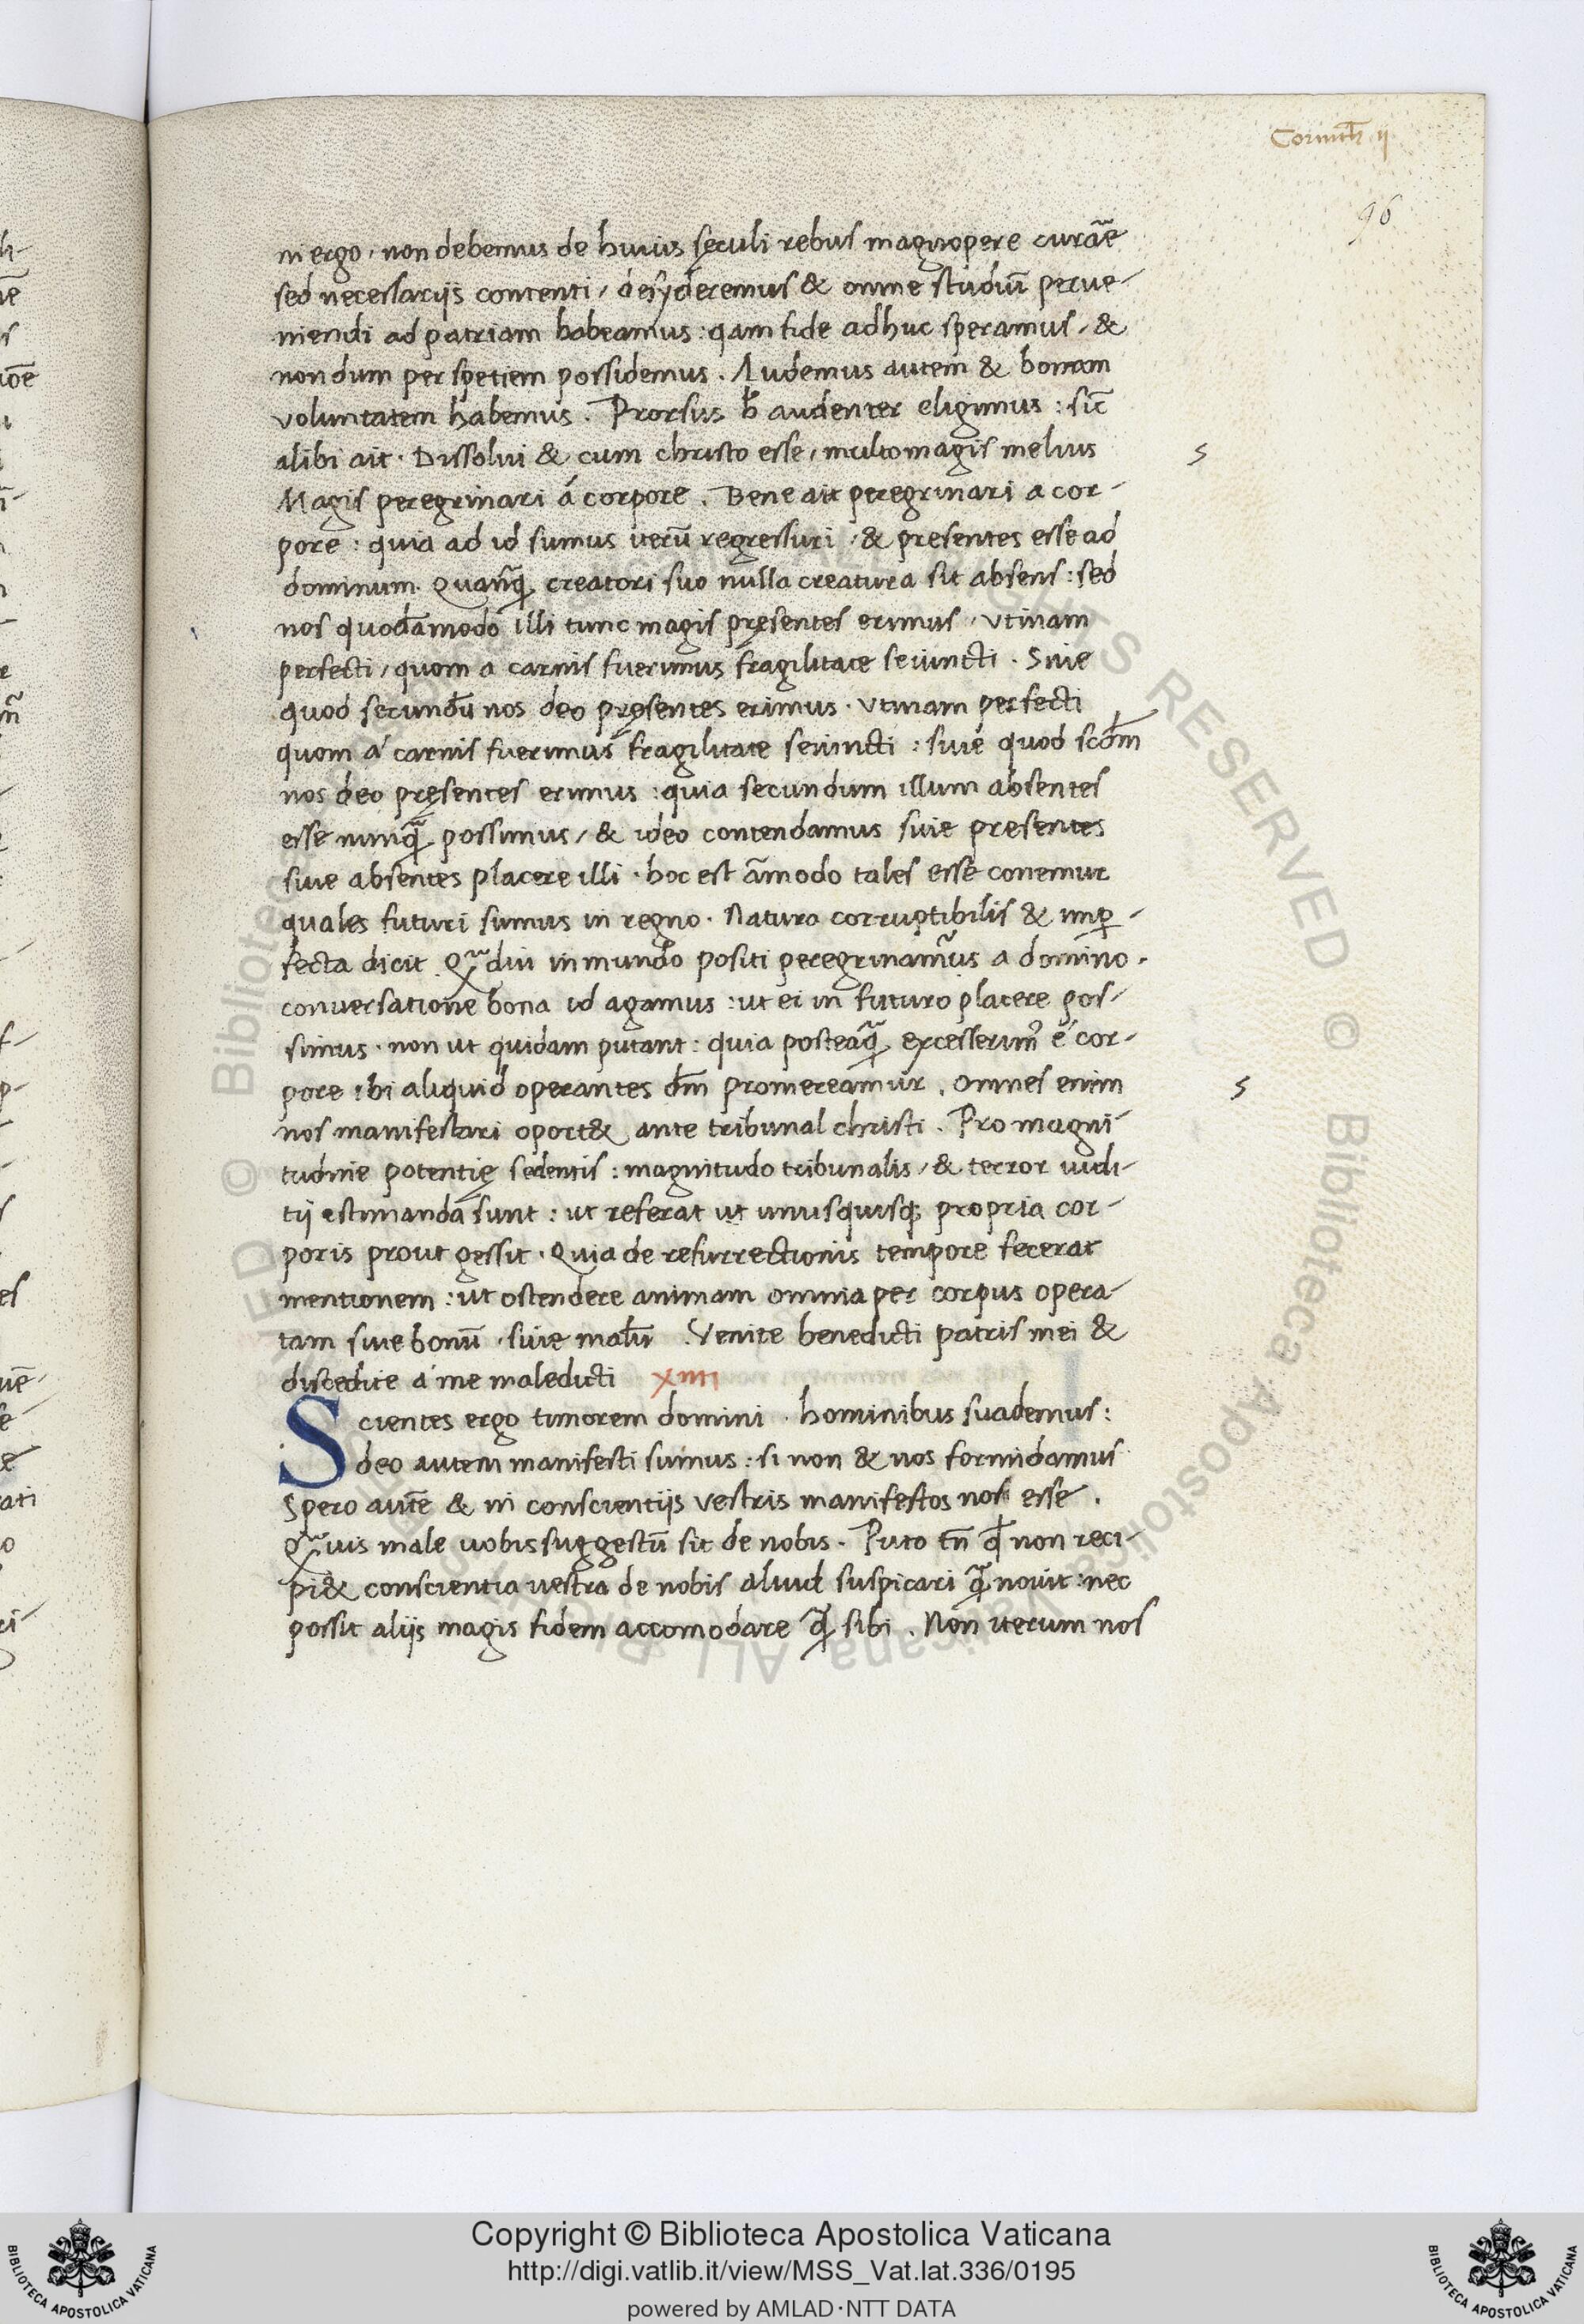 Corinth ij
96
ni ergo, non debemus de huius sęculi rebus magnopere curāe
sed necessarijs contenti, desyderemus & omne studiū perue-
niendi ad patriam habeamus: qam fide adhuc speramus, &
nondum per spetiem possidemus. Audemus autem & bonam
voluntatem habemus. Prorsus h̄ audenter eligimus: sic̄
alibi ait. Dissolui & cum christo esse, multo magis melius
Magis peregrinari á corpore. Bene ait peregrinari a cor-
pore: quia ad id sumus iterū regressuri, & presentes esse ad
dominum. Quanq̃ creatori suo nulla creatura sit absens: sed
nos quodāmodo illi tunc magis pręsentes erimus, vtinam
perfecti, quom a carnis fuerimus fragilitate seiuncti. Siue
quod secundū nos deo pręsentes erimus. vtinam perfecti
quom á carnis fuerimus fragilitate seiuncti: siue quod scd̄m
nos deo pręsentes erimus: quia secundum illum absentes
esse nunq̃ possimus, & ideo contendamus siue presentes
siue absentes placere illi. hoc est āmodo tales esse conemur
quales futuri sumus in regno. Natura corruptibilis & imp̲-
fecta dicit. Q̃diu in mundo positi peregrinamus a domino.
conuersatione bona id agamus: ut ei in futuro placere pos-
simus. non ut quidam putant: quia posteaq̃ excesserim᾿ é cor-
pore ibi aliquid operantes dm̄ promereamur. omnes enim
nos manifestari oport& ante tribunal christi. Pro magni-
tudine potentię sedentis: magnitudo tribunalis, & terror iudi-
tij estimanda sunt: ut referat ut unusquisq; propria cor-
poris prout gessit. Quia de resurrectionis tempore fecerat
mentionem: ut ostendere animam omnia per corpus opera-
tam siue bonū, siue malū. Venite benedicti patris mei &
discedite á me maledicti xiiii
Scientes ergo timorem domini. hominibus suademus:
deo autem manifesti sumus: si non & uos formidamus
Spero autē & in conscientijs vestris manifestos nos esse.
Q̃uis male uobis suggestū sit de nobis. Puto tn̄ q̄ non reci-
pi& conscientia uestra de nobis aliud suspicari q̃ nouit: nec
possit alijs magis fidem accomodare q̃ sibi. Non iterum nos
Copyright © Biblioteca Apostolica Vaticana
http://digi.vatlib.it/view/MSS_Vat.lat.336/0195
powered by AMLAD·NTT DATA